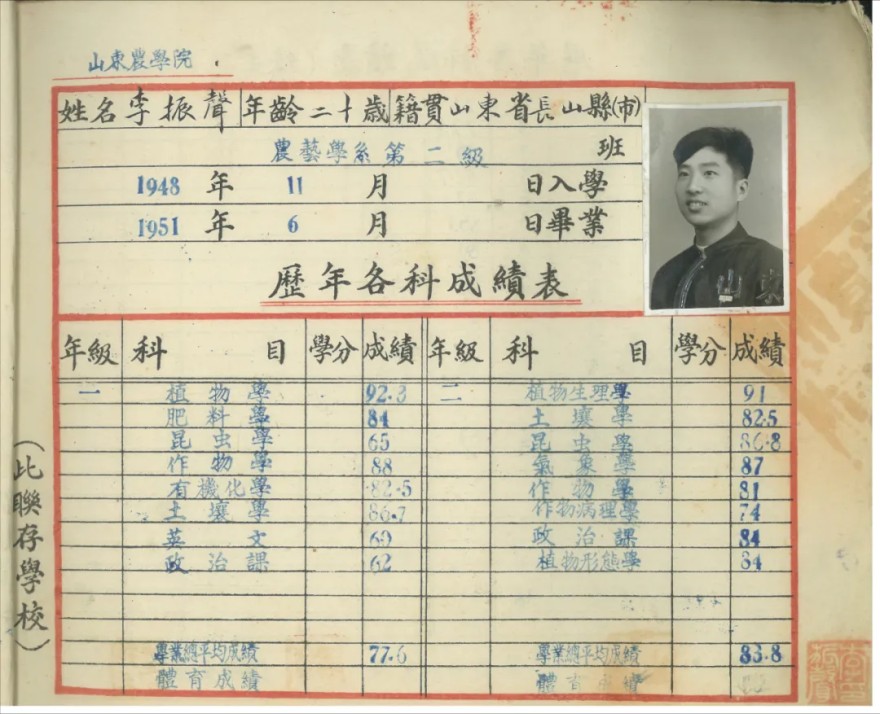 山東農學院
姓名 李振聲 年齡 二十歲 籍貫 山東省長山縣(市)
農藝學系第二級 班
1948 年 11 月 日入學
1951 年 6 月 日畢業
歷年各科成績表
年級 科目 學分 成績 年級 科目 學分 成績
一 植物學 92.3 二 植物生理學 91
肥料學 84 土壤學 82.5
昆虫學 65 昆虫學 86.8
作物學 88 氣象學 87
有機化學 82.5 作物學 81
土壤學 86.7 作物病理學 74
英文 69 政治課 84
政治課 62 植物形態學 84
學業總平均成績 77.6 學業總平均成績 83.8
體育成績 體育成績
(此聯存學校)
山東